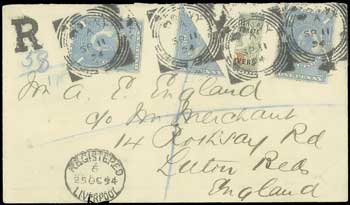 R
58
SP 11
94
SP 11
94
SP 11
94
SP 11
94
ONE PENNY
ONE PENNY
Mr A. E. England
c/o Mr Merchant
14 Rothsay Rd
Luton Beds
England
REGISTERED
6
25 OC 94
LIVERPOOL